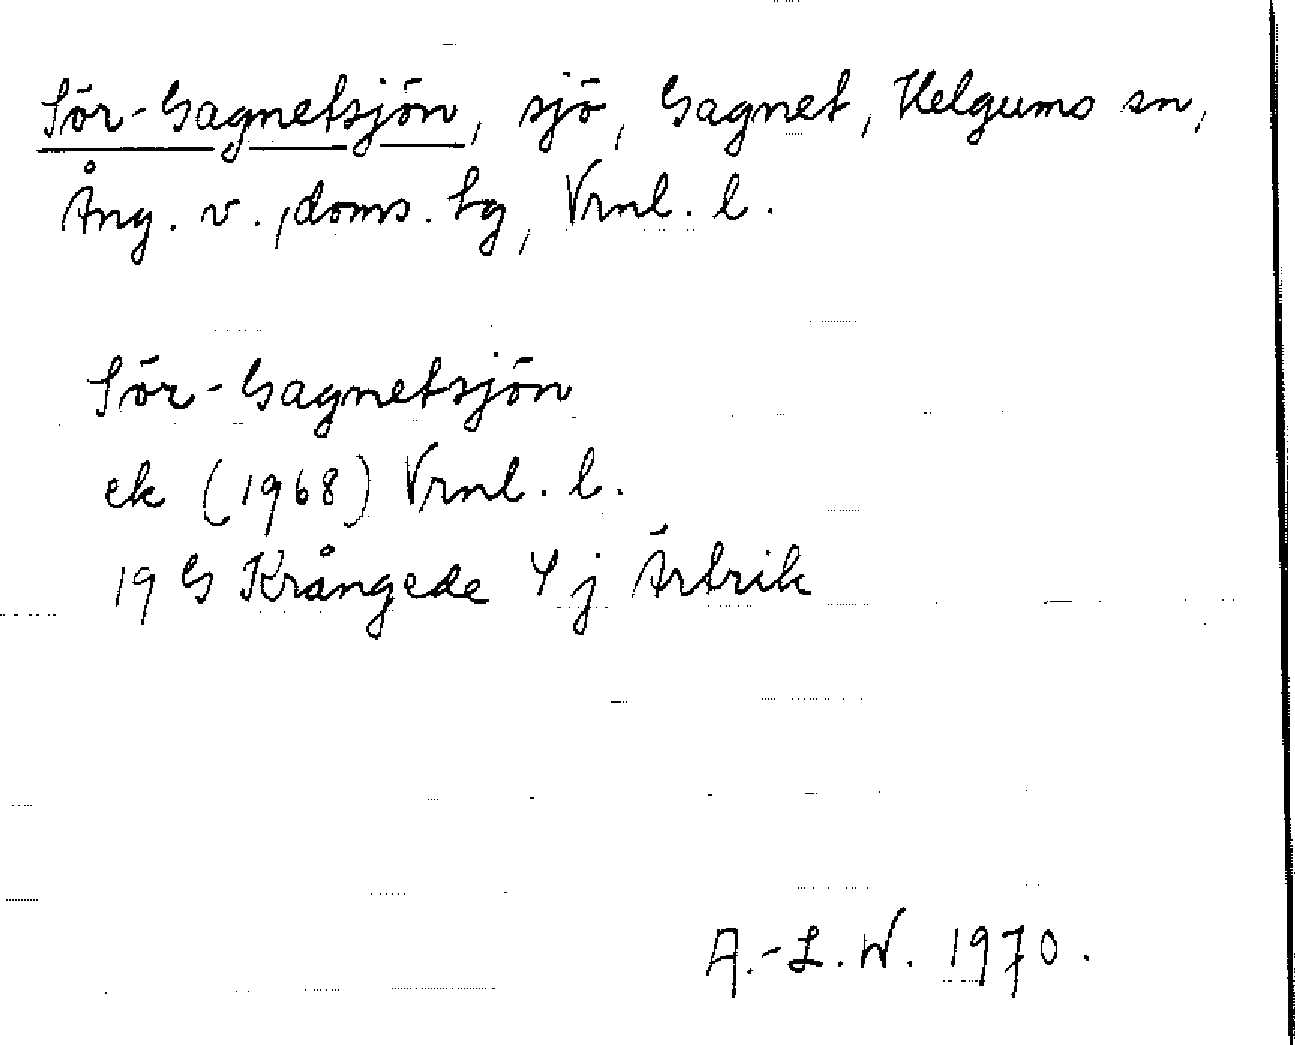 Sör-Gagnetsjön, sjö, Gagnet, Helgums sn,
Ång. v., doms. tg, Vrnl. l.
Sör-Gagnetsjön
ek (1968) Vrnl. l.
19 G Krångede 4 j Ärtrik
A.-L. W. 1970.